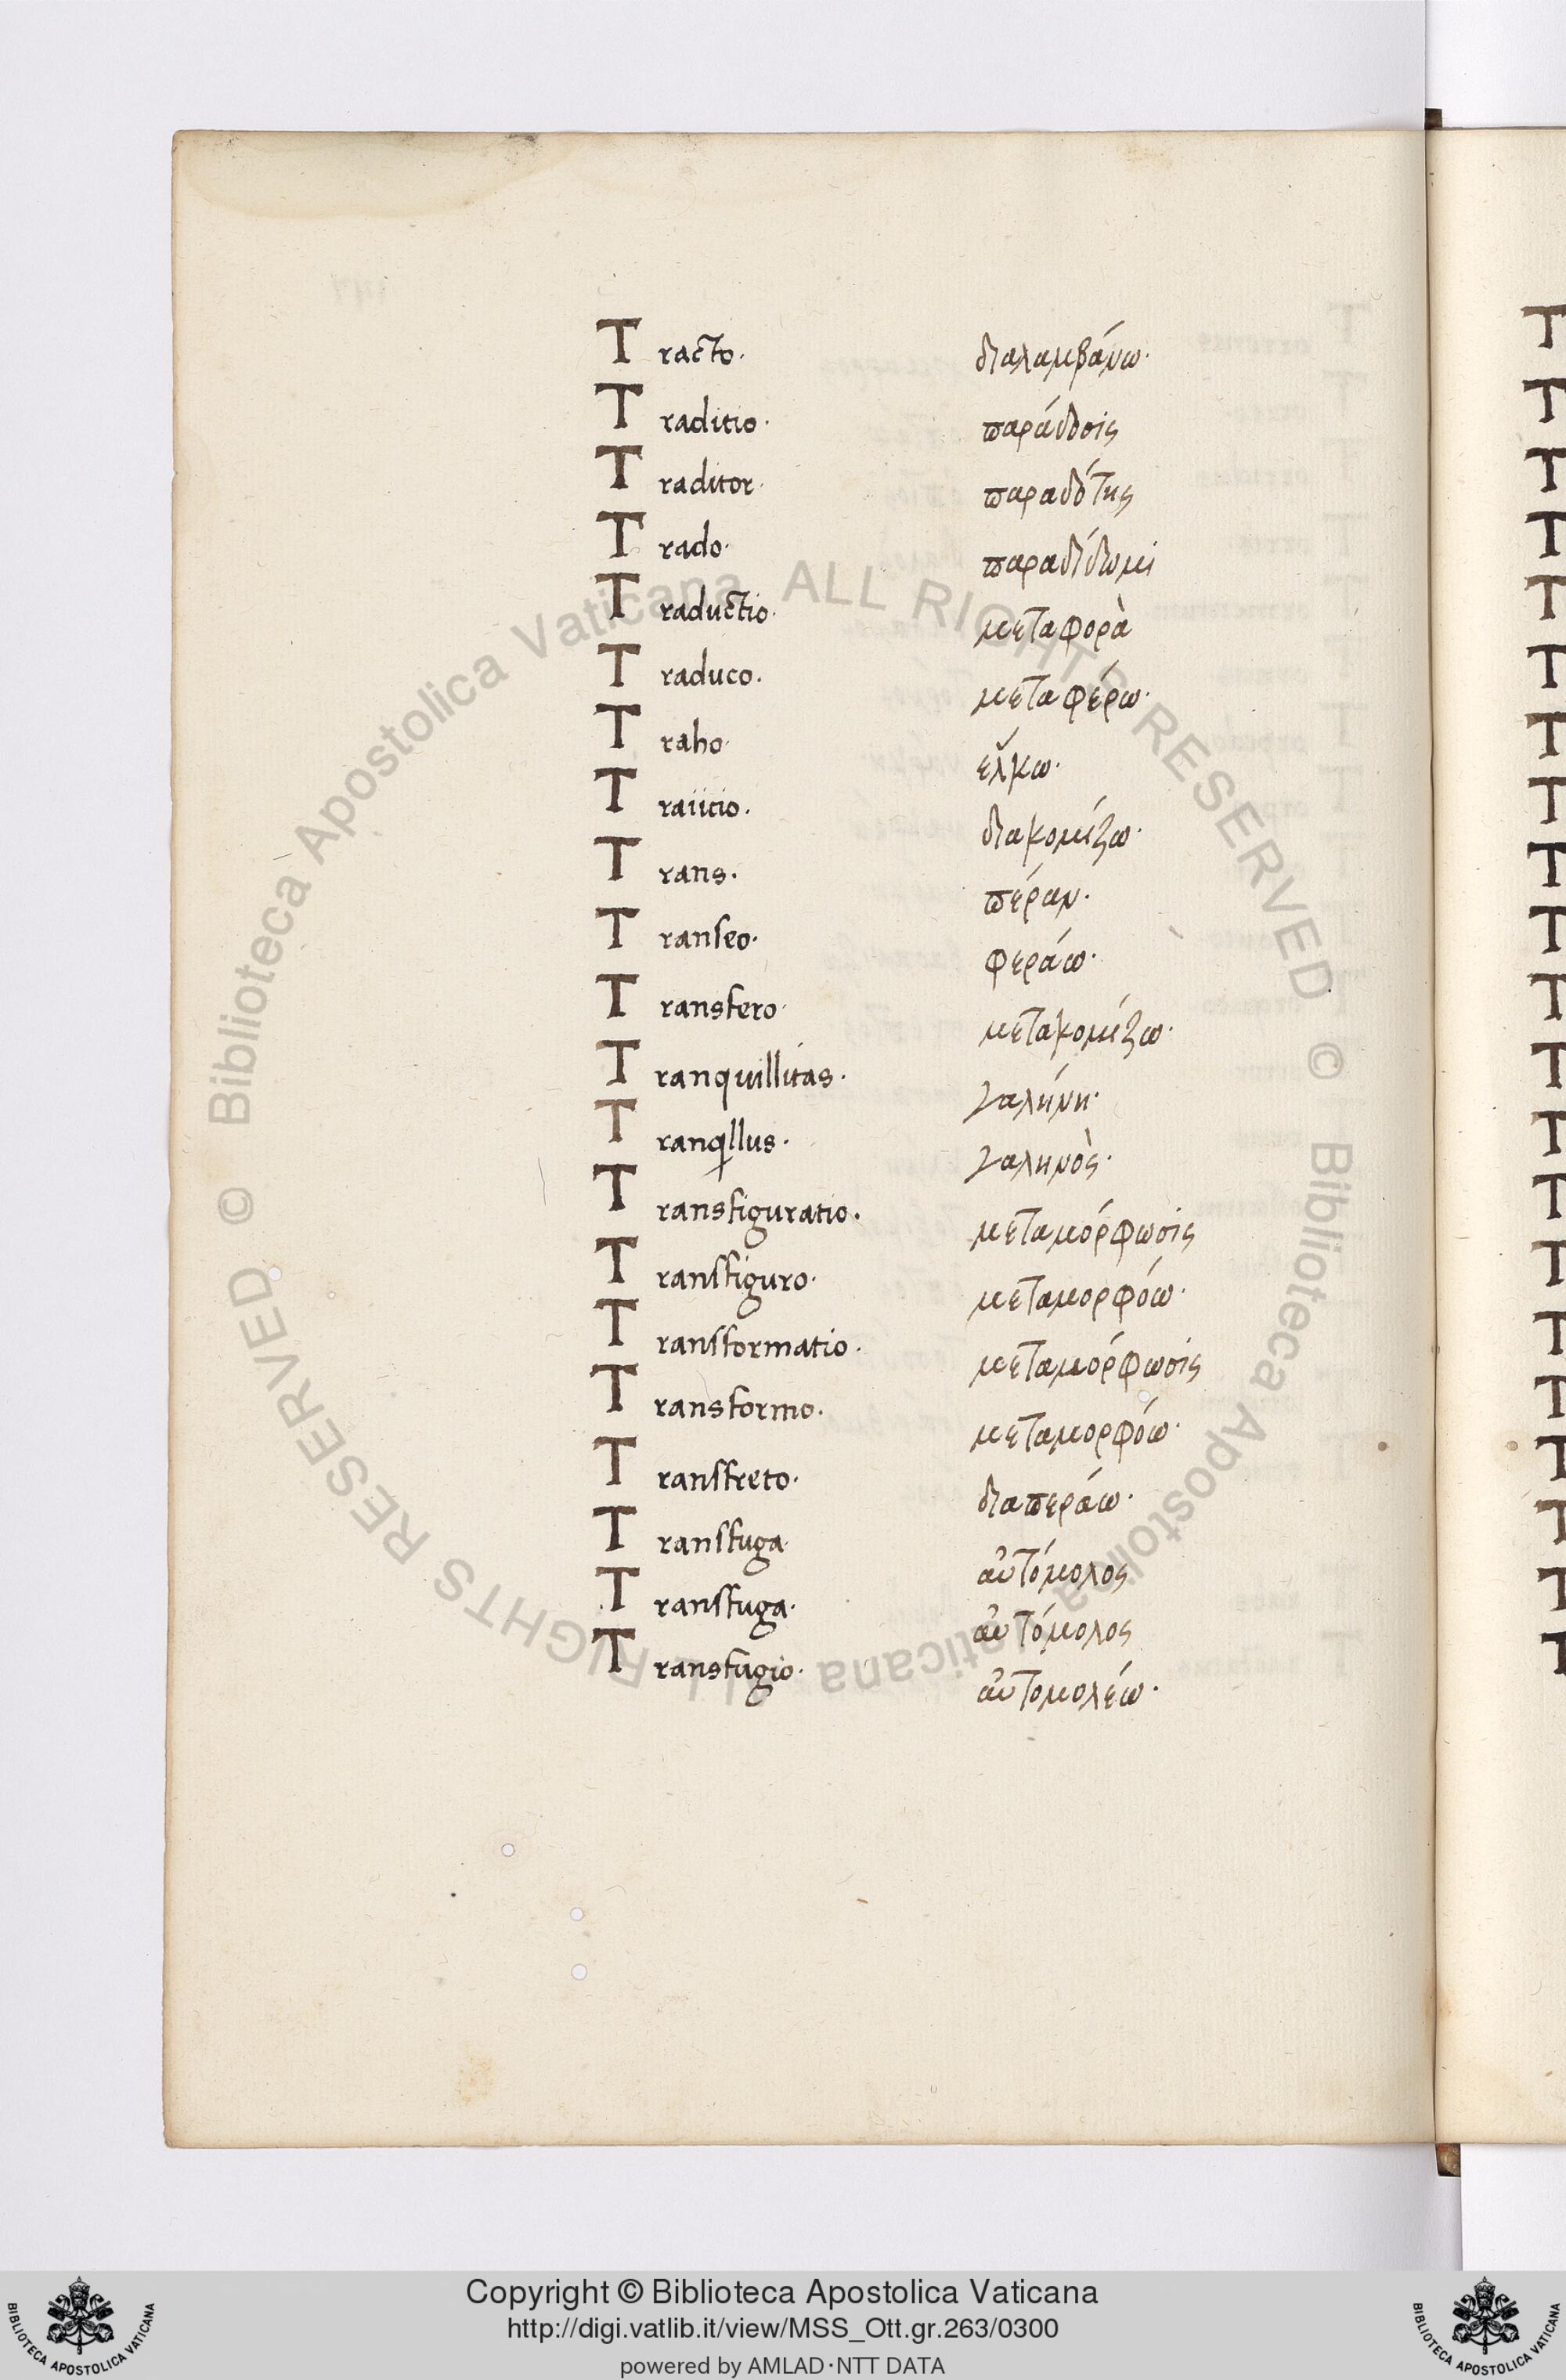 Tracto· διαλαμβάνω·
Traditio· παράδοσις
Traditor· παραδότης
Trado· παραδίδωμι
Traductio· μεταφορὰ
Traduco· μεταφέρω·
Traho· ἕλκω·
Traiicio· διακομίζω·
Trans· πέραν·
Transeo· φεράω·
Transfero· μετακομίζω·
Tranquillitas· γαλήνη·
Tranqillus· γαληνὸς·
Transfiguratio· μεταμόρφωσις
Transfiguro· μεταμορφόω·
Transformatio· μεταμόρφωσις
Transformo· μεταμορφόω·
Transfreto· διαπεράω·
Transfuga αὐτόμολος
Transfuga· αὐτόμολος
Transfugio· αὐτομολέω·
© Biblioteca Apostolica Vaticana ALL RIGHTS RESERVED © Biblioteca Apostolica Vaticana ALL RIGHTS RESERVED
Copyright © Biblioteca Apostolica Vaticana
http://digi.vatlib.it/view/MSS_Ott.gr.263/0300
powered by AMLAD·NTT DATA
BIBLIOTECA APOSTOLICA VATICANA
BIBLIOTECA APOSTOLICA VATICANA